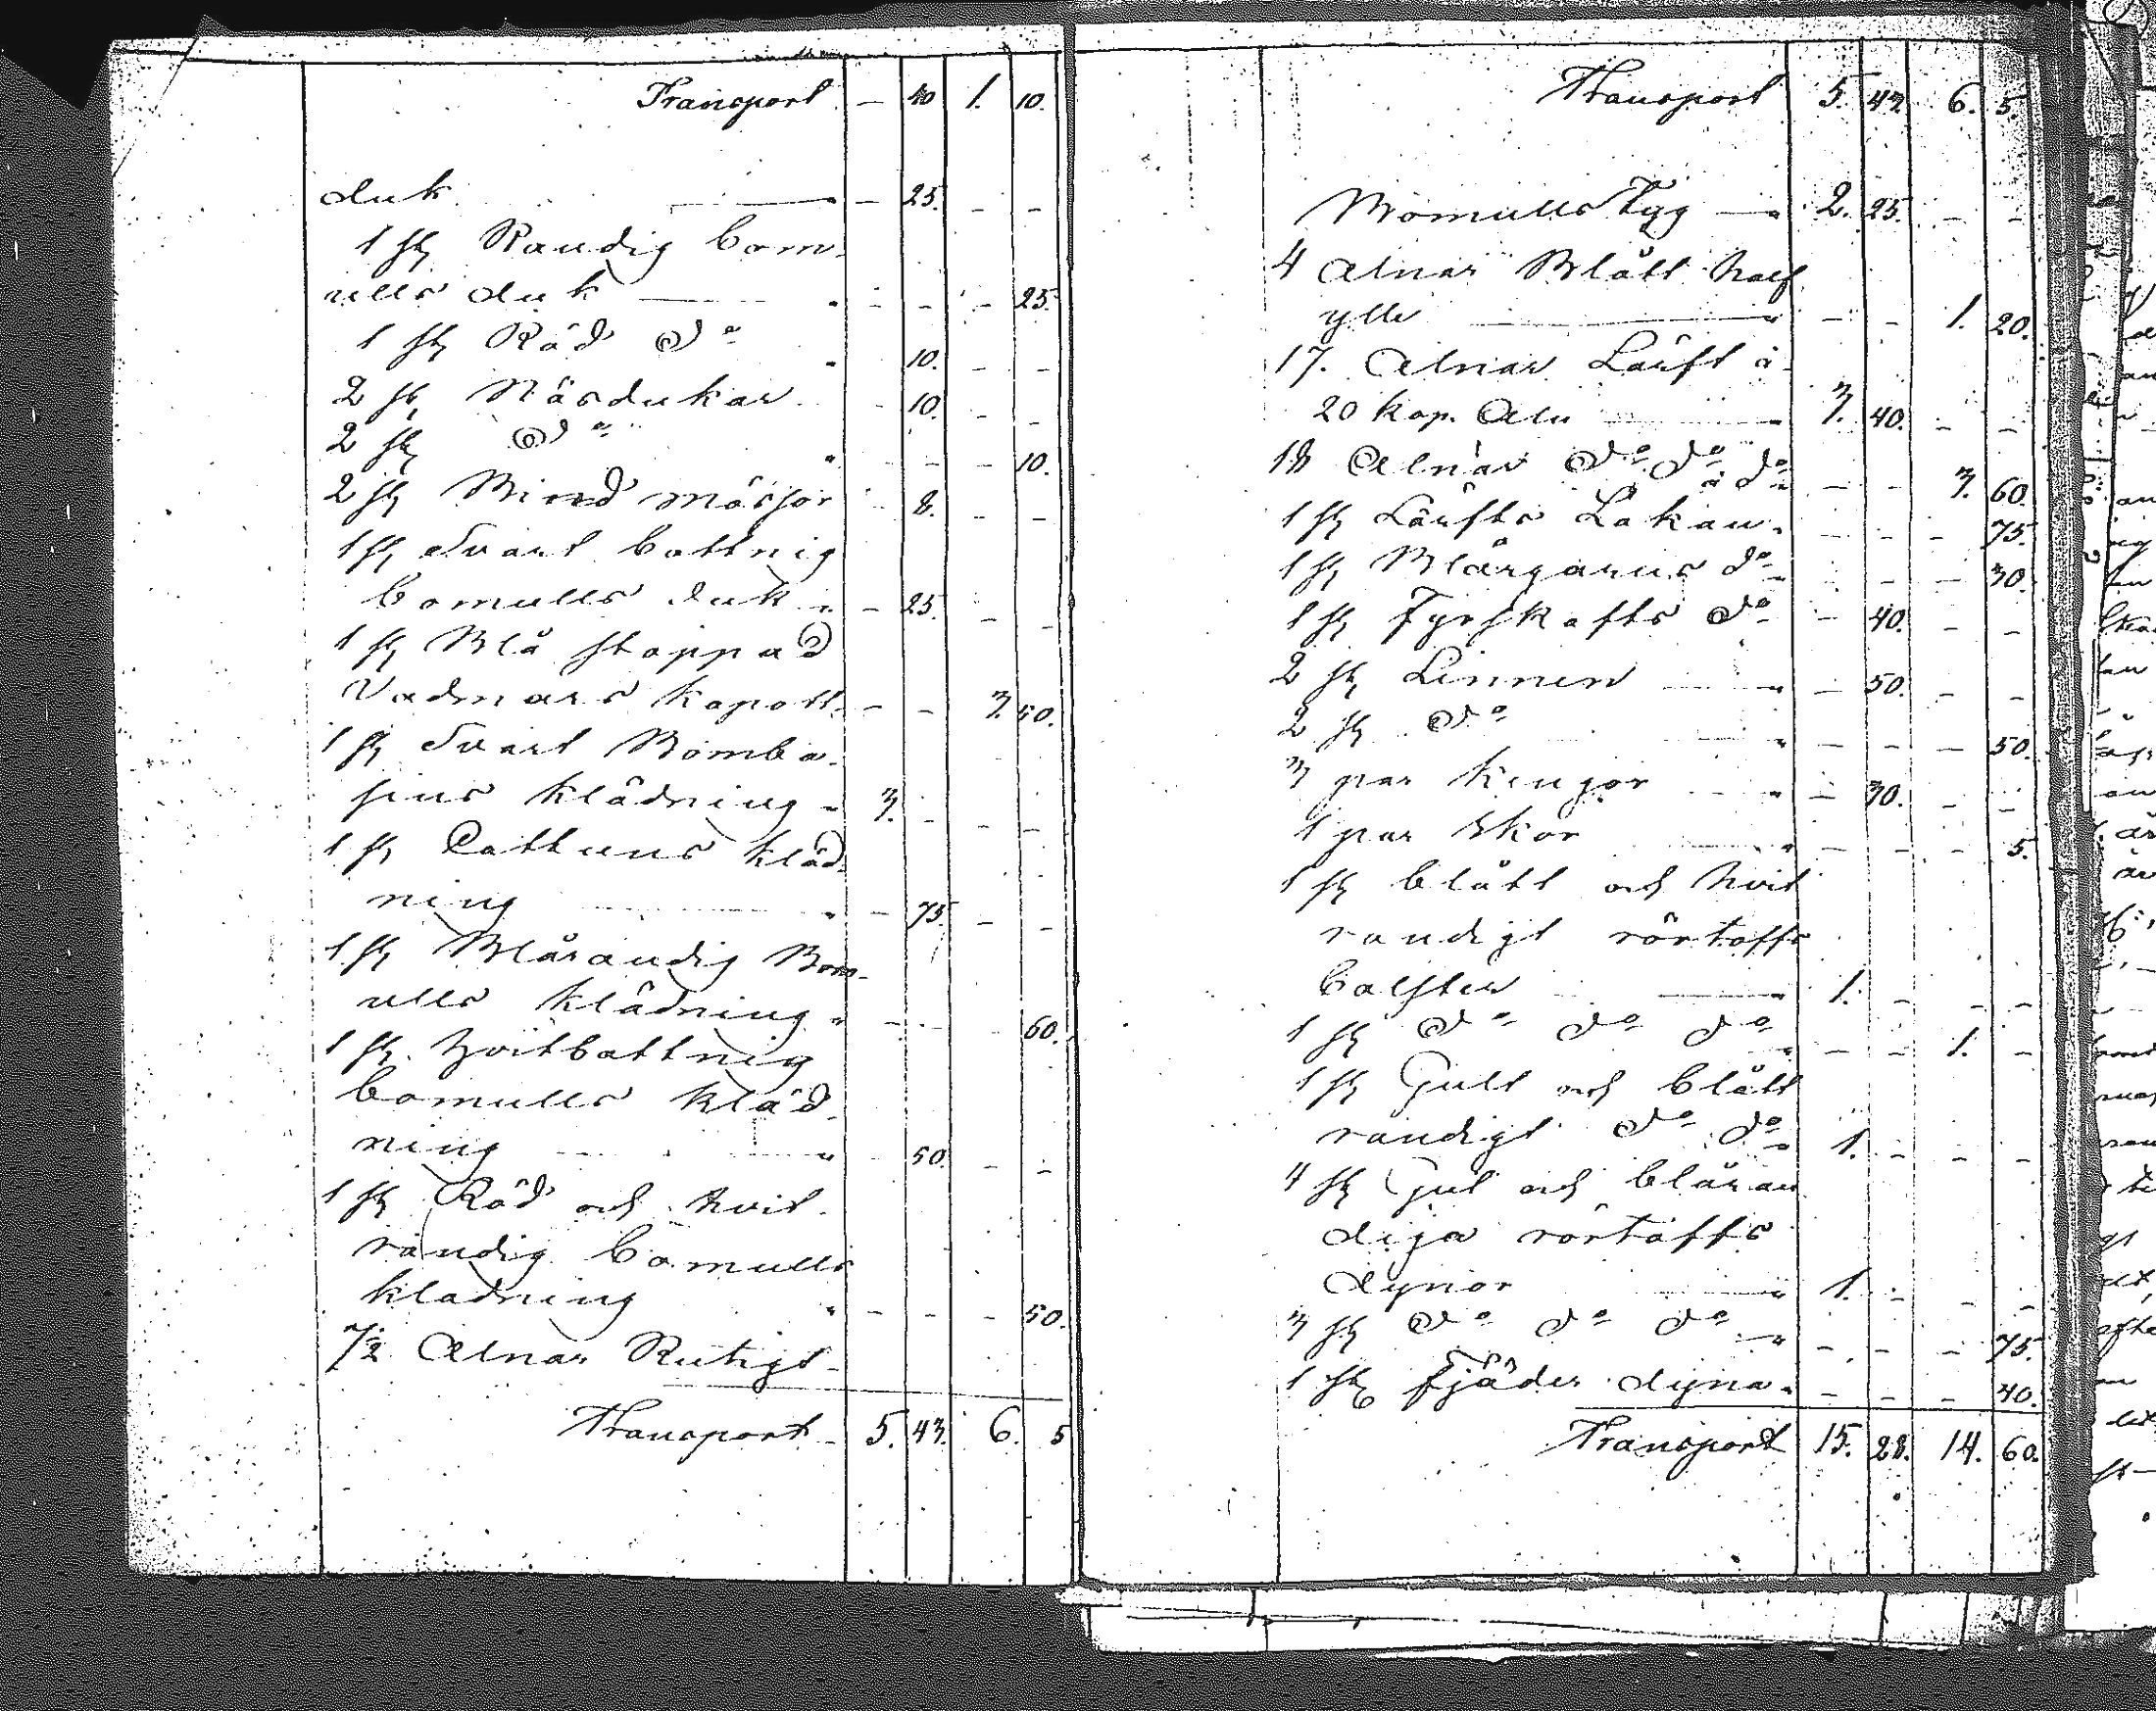 Transport — 40 1. 10.
duk — 25. — —
1 st Randig bom-
ulls duk — — — 25.
1 st Röd do 10. — —
2 st Näsdukar 10. — —
2 st do — — 10.
2 st Bind mössor 8. — —
1 st Svart bottnig
bomulls duk — 25. — —
1 st Blå stoppad
Vadmars kapott — — 3. 50.
1 st Svart Bomba-
sins klädning 3. — — —
1 st Cattuns kläd-
ning — 75. — —
1 st Blårandig Bom-
ulls klädning — — — 60.
1 st. hvitbottnig
bomulls kläd-
ning 50. — —
1 st Röd och hvit
randig bomulls
kladning — — — 50.
7½ Alnar Rutigt
Transport 5. 43. 6. 5
Transport 5. 43. 6. 5.
Bomulls Tyg 2. 25. — —
4 alnar Blått half
ylle — — 1. 20.
17. Alnar Lärft à
20 kop. Aln 3. 40. — —
18 Alnar do do à do — — 3. 60.
1 st Lärfts Lakan — — — 75.
1 st Blårgarns do — — — 30.
1 st Fyrskafts do — 40. — —
2 st Linnen — 50. — —
2 st do — — — 50.
3 par Kengor — 30. — —
1 par Skor — — — 5.
1 st blått och hvit
randigt rörtafts
bolster 1. — — —
1 st do do do — — 1. —
1 st Gult och blått
randigt do do 1. — — —
4 st Gul och blåran
diga rörtafts
dynor 1. — — —
3 st do do do — — — 75.
1 st fjäder dyna — — — 40.
Transport 15. 28. 14. 60.